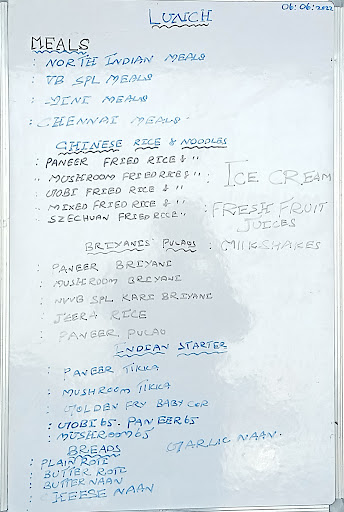 LUNCH
06:06:2022
MEALS
: NORTH INDIAN MEALS
: VB SPL MEALS
: MINI MEALS
: CHENNAI MEALS.
CHINESE RICE & NOODLES
: PANEER FRIED RICE & "
: MUSHROOM FRIED RICE & "
: GOBI FRIED RICE & "
: MIXED FRIED RICE & "
: SZECHUAN FRIED RICE "
: ICE CREAM
: FRESH FRUIT
JUICES
: MILKSHAKES
BRIYANIS PULAOS
: PANEER BRIYANI
: MUSHROOM BRIYANI
: SPL KARI BRIYANI
: JEERA RICE
: PANEER PULAO
INDIAN STARTER
: PANEER TIKKA
: MUSHROOM TIKKA
: GOLDEN FRY BABY COR
: GOBI 65. PANEER 65
: MUSHROOM 65
BREADS
GARLIC NAAN.
: PLAIN ROTI
: BUTTER ROTI
: BUTTER NAAN
: CHEESE NAAN